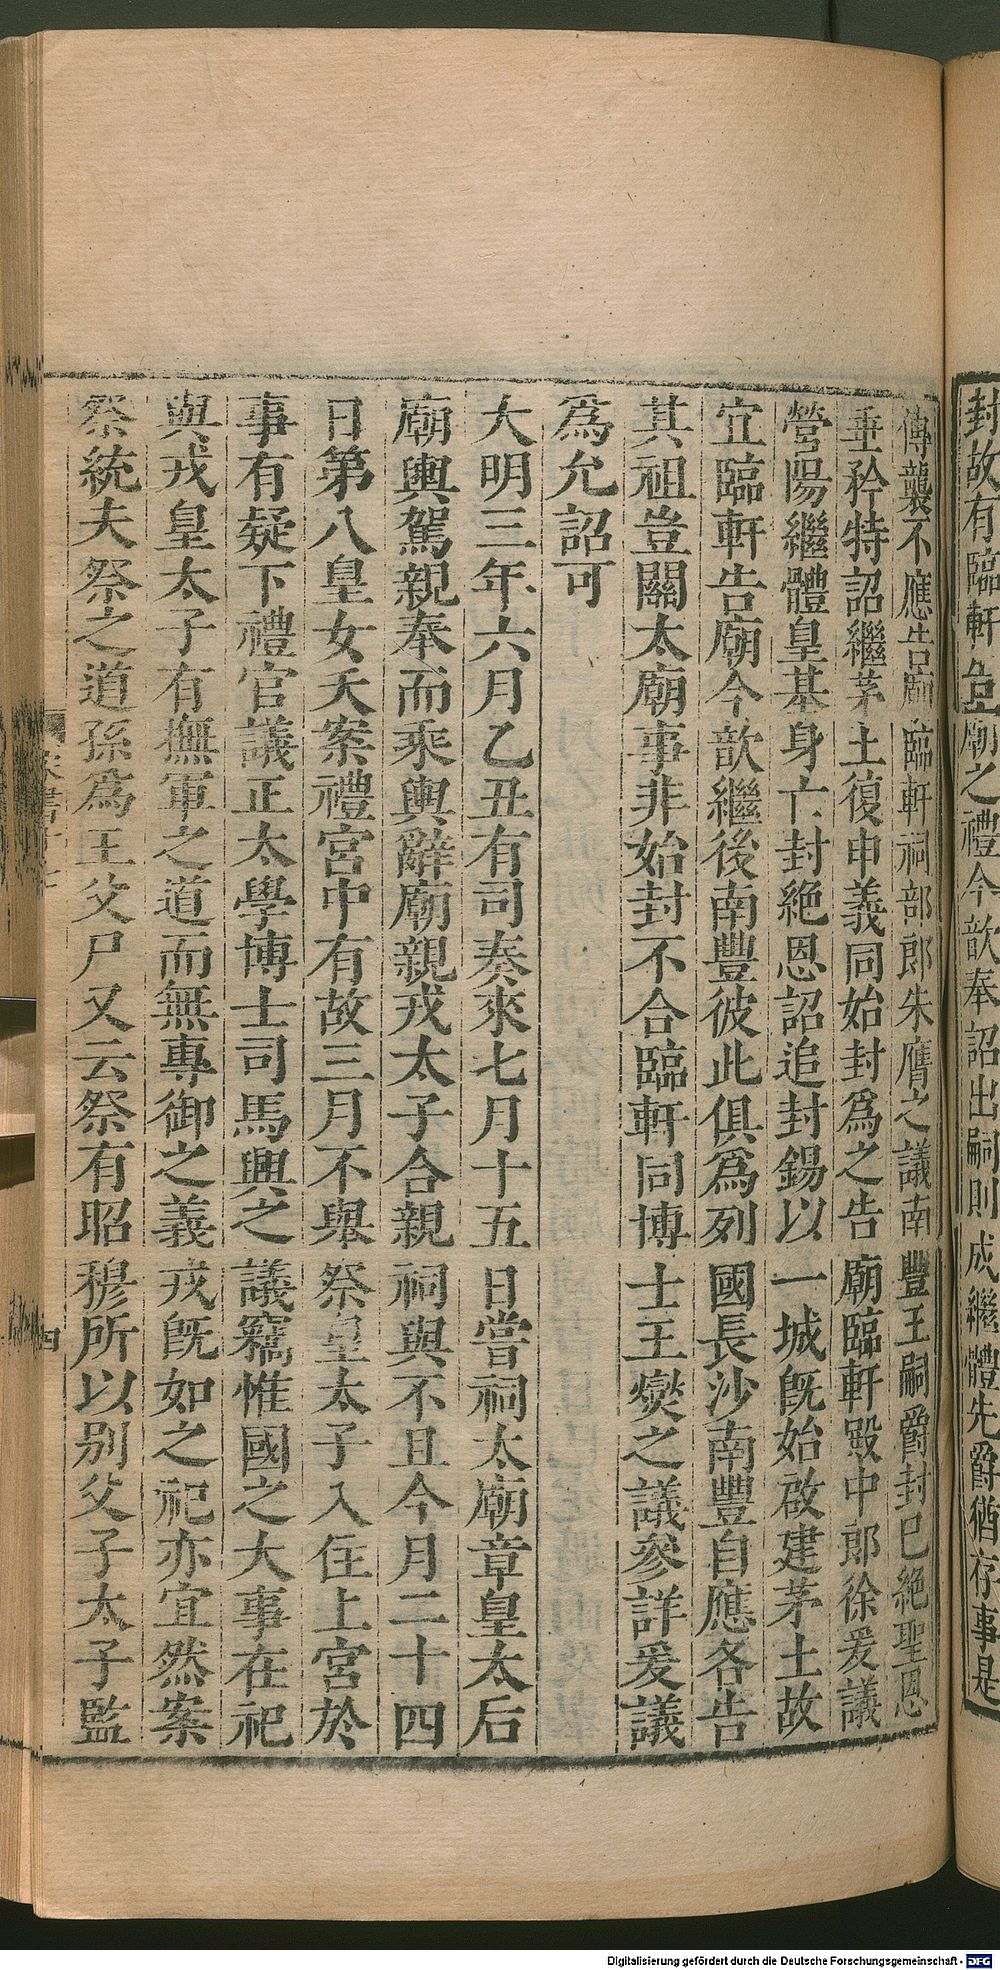 封故有臨軒告廟之禮今歆奉詔出嗣則成繼體先爵猶存事是
傳襲不應告廟臨軒祠部郎朱膺之議南豐王嗣爵封已絶聖恩
垂矜特詔繼茅土復申義同始封爲之告廟臨軒殿中郎徐爰議
營陽繼體皇基身亡封絶恩詔追封錫以一城旣始啟建茅土故
宜臨軒告廟今歆繼後南豐彼此俱爲列國長沙南豐自應各告
其祖豈關太廟事非始封不合臨軒同博士王燮之議參詳爰議
爲允詔可
大明三年六月乙丑有司奏來七月十五日嘗祠太廟章皇太后
廟輿駕親奉而乘輿辭廟親戎太子合親祠與不且今月二十四
日第八皇女夭案禮宮中有故三月不舉祭皇太子入住上宮於
事有疑下禮官議正太學博士司馬興之議竊惟國之大事在祀
與戎皇太子有撫軍之道而無專御之義戎旣如之祀亦宜然案
祭統夫祭之道孫爲王父尸又云祭有昭穆所以别父子太子監
四
Digitalisierung gefördert durch die Deutsche Forschungsgemeinschaft - DFG